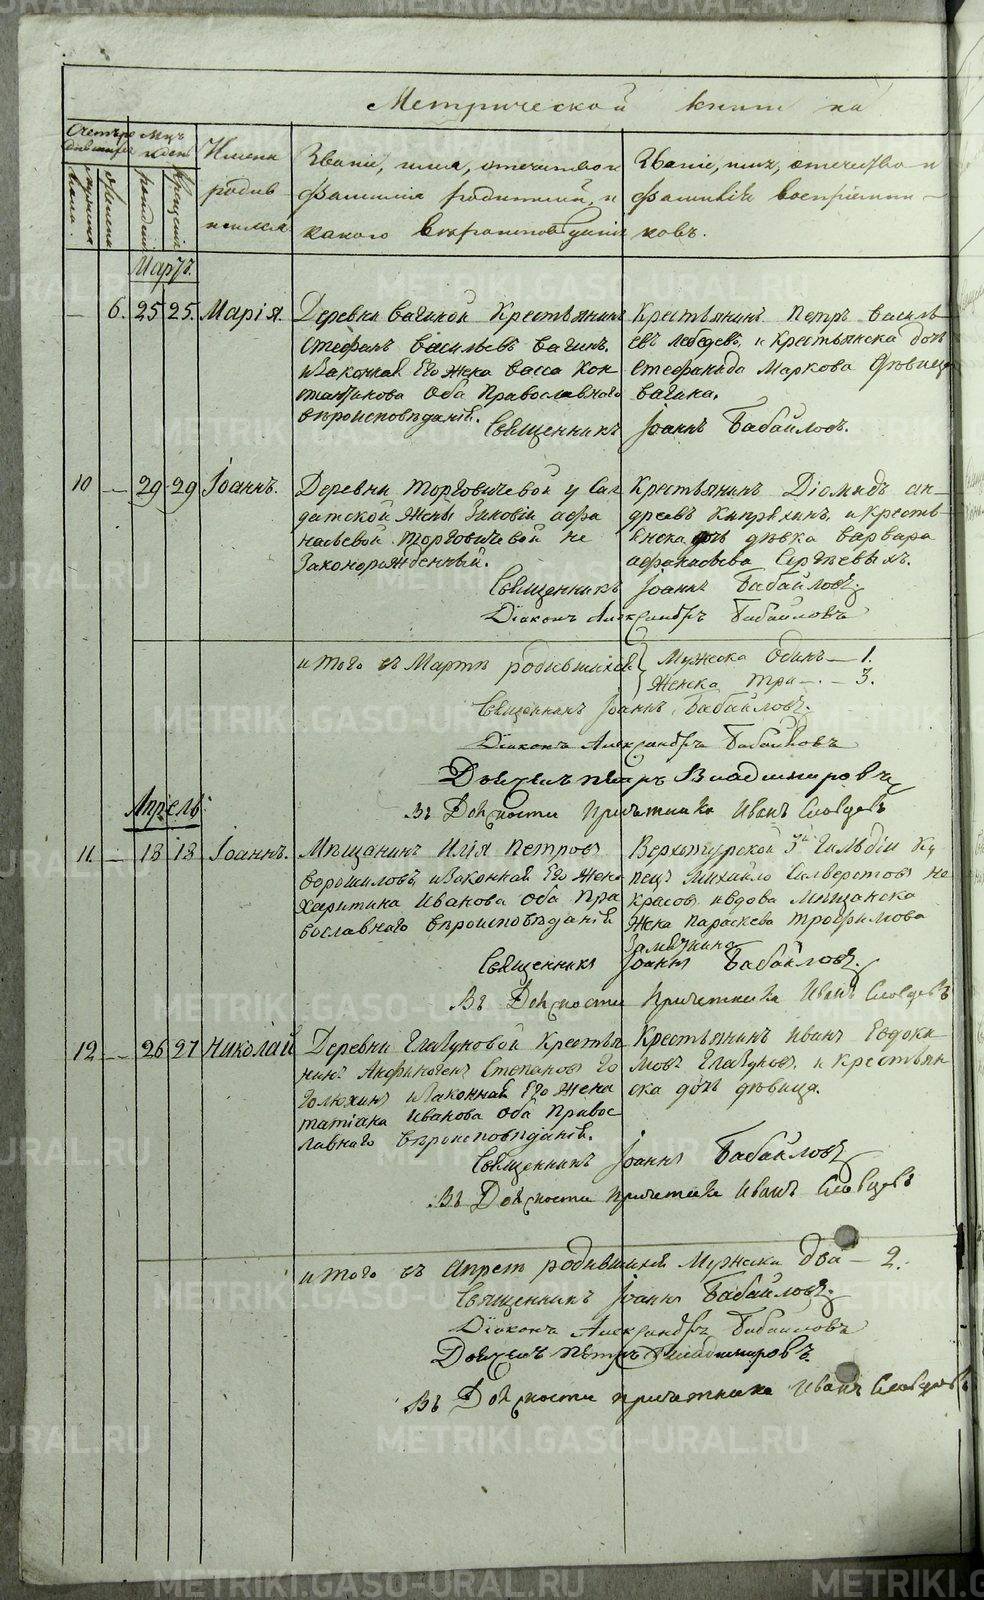 Метрической книги на
Счетъ родившихся
Мцъ и день
Имена родившихся
Званіе, имя, отечество и
фамилія родителей, и
какого вѣроисповѣданія
Званіе, имя, отечество и
фамилія воспріемни-
ковъ.
мужеска
женска
рожденія
крещенія
Мартъ.
— 6. 25 25. Марія.
Деревни Вагиной Крестьянинъ
Стефанъ Васильевъ Вагинъ,
и Законная Его Жена Васса Кон
стантинова Оба Православнаго
вѣроисповѣданія.
Крестьянинъ Петръ Василь
евъ Лебедевъ, и Крестьянска дочь
Стефанида Маркова дѣвица
Вагина.
Священникъ Іоаннъ Бабайловъ.
10 — 29 29 Іоаннъ.
Деревни Торговичевой у Сол
датской Жены Зиновіи Афа
насьевой Торговичевой не
Законорожденный.
Крестьянинъ Діомидъ Ан-
дреевъ Кипрѣхинъ, и Кресть
янска дочь дѣвка Варвара
Афанасьева Сергѣевыхъ.
Священникъ Іоаннъ Бабайловъ.
Діаконъ Александръ Бабайловъ
итого въ Мартѣ родившихся
Мужска Одинъ — 1.
Женска три — . — 3.
Священникъ Іоаннъ Бабайловъ.
Діаконъ Александръ Бабайловъ
Дьячекъ Петръ Владимировъ
Въ Должности Причетника Иванъ Словцовъ
Апрѣль.
11. — 18 18 Іоаннъ.
Мѣщанинъ Илія Петровъ
Ворошиловъ, и Законная Его Жена
Харитина Иванова Оба Пра
вославнаго вѣроисповѣданія
Верхотурской 3й Гильдіи Ку
пецъ Михайло Силверстовъ Не
красовъ и вдова Мѣщанска
Жена Параскева Трофимова
Замѣткина
Священникъ Іоаннъ Бабайловъ.
Въ Должности Причетника Иванъ Словцовъ
12 — 26 27 Николай
Деревни Глазуновой Крестья
нинъ Анфиногенъ Степановъ Го
голюхинъ и Законная Его Жена
Татіана Иванова Оба Правос
лавнаго вѣроисповѣданія.
Крестьянинъ Иванъ Евдоки
мовъ Глазуновъ, и Крестьян
ска дочь дѣвица.
Священникъ Іоаннъ Бабайловъ
Въ Должности Причетника Иванъ Словцовъ
итого въ Апрелѣ родившихся Мужска два — 2.
Священникъ Іоаннъ Бабайловъ.
Діаконъ Александръ Бабайловъ
Дьячекъ Петръ Владимировъ.
Въ Должности причетника Иванъ Словцовъ
METRIKI.GASO-URAL.RU